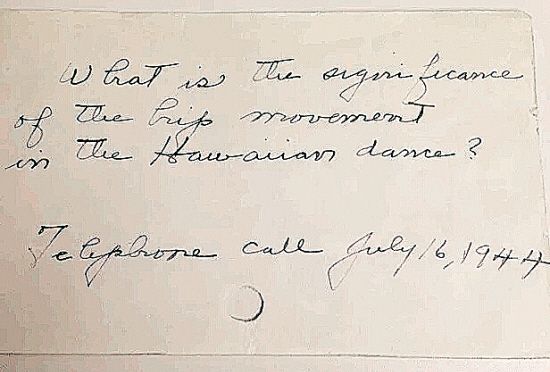 What is the significance
of the hip movement
in the Hawaiian dance?
Telephone call July 16, 1944